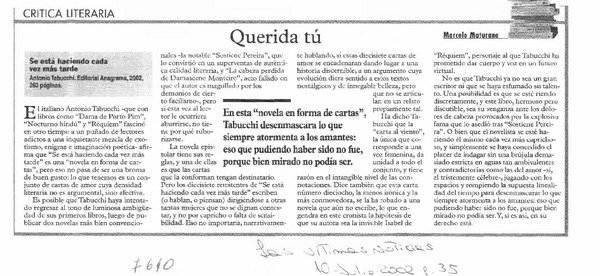 CRITICA LITERARIA
Querida tú
Marcelo Maturana
Se está haciendo cada
vez más tarde
Antonio Tabucchi. Editorial Anagrama, 2002,
263 páginas.
El italiano Antonio Tabucchi -que con
libros como "Dama de Porto Pim",
"Nocturno hindú" y "Réquiem" fascinó
en otro tiempo a un puñado de lectores
adictos a una inquietante mezcla de exo-
tismo, enigma e imaginación poética- afir-
ma que "Se está haciendo cada vez más tar-
de" es una "novela en forma de car-
tas", pero eso no pasa de ser una broma de
buen gusto: lo que tenemos es un conjun-
to de cartas de amor cuya densidad
literaria no es argumental, sino afectiva.
Es posible que Tabucchi haya intenta-
do regresar al tono de luminosa ambigüe-
dad de sus primeros libros, luego de publi-
car dos novelas más bien convencio-
nales -la notable "Sostiene Pereira", que
lo convirtió en un superventas de autén-
tica calidad literaria, y "La cabeza perdida
de Damasceno Monteiro", acto fallido en
que el autor es acosado por los
demonios de
cierto
facilismo-, pero
en esta vez al lec-
tor le ocurrirá
aburrirse, no tie-
ne por qué robo-
rizarse.
La novela epis-
tolar tiene sus re-
glas, y una de ellas
es que las cartas
que la conforman tengan destinatario.
Pero los diecisiete remitentes de "Se está
haciendo cada vez más tarde" escriben
(o hablan, o piensan) dirigiéndose a otras
tantas mujeres que no se dignan contes-
tar, y no por capricho o falta de sensi-
bilidad. Eso no importaría, narrativamen-
En esta "novela en forma de cartas",
Tabucchi desenmascara lo que
siempre atormenta a los amantes:
eso que pudiendo haber sido no fue,
porque bien mirado no podía ser.
te hablando, si estas diecisiete cartas de
amor se encadenaran dando lugar a una
historia discernible, a un argumento cuya
evolución diera sentido a estos textos
nostálgicos y de innegable belleza, pero
que no se articu-
lan en un relato
propiamente tal.
Ha dicho Ta-
bucchi que la
"carta al viento",
la única que co-
rresponde a una
voz femenina, da
unidad a todo el
conjunto, y tiene
razón en el intangible nivel de las con-
notaciones. Dice también que esta carta
número dieciocho, la menos irónica y la
más conmovedora, se la ha robado a una
novela que aún no escribe, lo que engen-
dra en este cronista la hipótesis de que
su autora sea la invisible Isabel de
"Réquiem", personaje al que Tabucchi ha
prometido dar cuerpo y voz en un futuro
virtual.
No es que Tabucchi ya no sea un gran
escritor ni que se haya esfumado su talen-
to. Una posibilidad es que se esté riendo
discretamente, y este libro, hermoso pero
discutible, sea su venganza ante los dolo-
res de cabeza provocados por la explosiva
fama que le asedió tras "Sostiene Perei-
ra". O bien que el novelista se esté ha-
ciendo él mismo cada vez más capricho-
so, y simplemente se haya concedido el
placer de indagar sin una brújula dema-
siado estricta en aguas tan ambivalentes
y contradictorias como las del amor -sí,
el tristemente célebre-, jugando con los
espacios y rompiendo la supuesta lineali-
dad del tiempo para desenmascarar lo que
siempre atormenta a los amantes: eso que
pudiendo haber sido no fue, porque bien
mirado no podía ser. Y, si es así, en su
derecho está.
7610
Las Ultimas Noticias
10-Julio 2002 p. 35